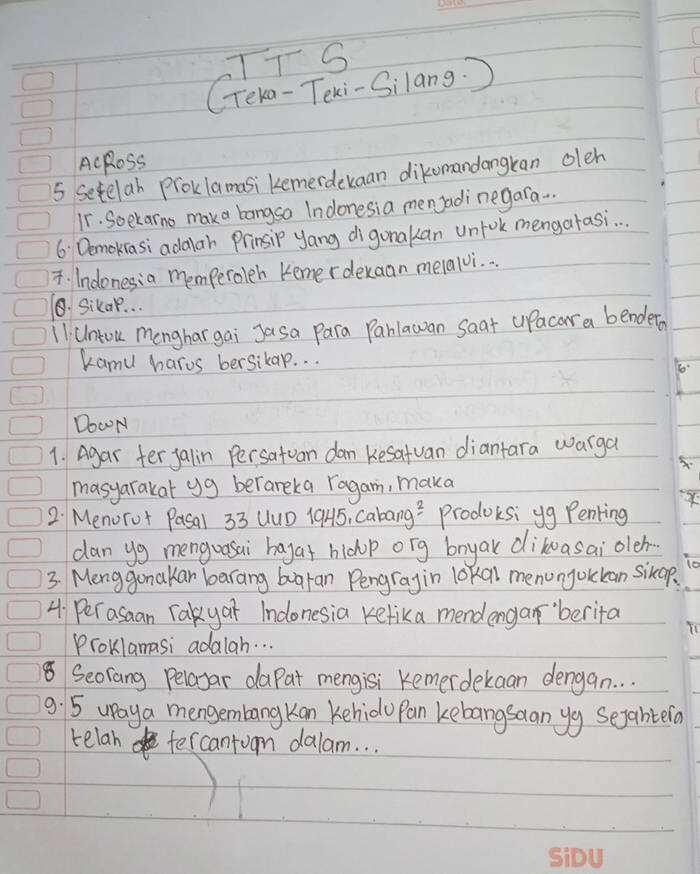 TTS
(Teka-Teki-Silang.)
AcRoss
5 Setelah Proklamasi kemerdekaan dikumandangkan oleh
Ir. Soekarno maka bangsa Indonesia menjadi negara...
6. Demokrasi adalah Prinsip yang digunakan untuk mengatasi...
7. Indonesia memperoleh kemerdekaan melalui...
10. Sikap...
11 Untuk menghargai Jasa Para Pahlawan saat upacara bendera
kamu harus bersikap...
DOWN
1. Agar terjalin Persatuan dan kesatuan diantara warga
masyarakat yg beraneka ragam, maka
2. Menurut Pasal 33 UUD 1945, cabang² produksi yg Penting
dan yg menguasai hajat hidup org bnyak dikuasai oleh...
3. Menggunakan barang buatan Pengrajin lokal menunjukkan sikap.
4. Perasaan rakyat Indonesia ketika mendengar berita
Proklamasi adalah...
8 Seorang Pelajar dapat mengisi kemerdekaan dengan...
9. 5 upaya mengembangkan kehidupan kebangsaan yg sejahtera
telah tercantum dalam...
SiDU
6.
10
11